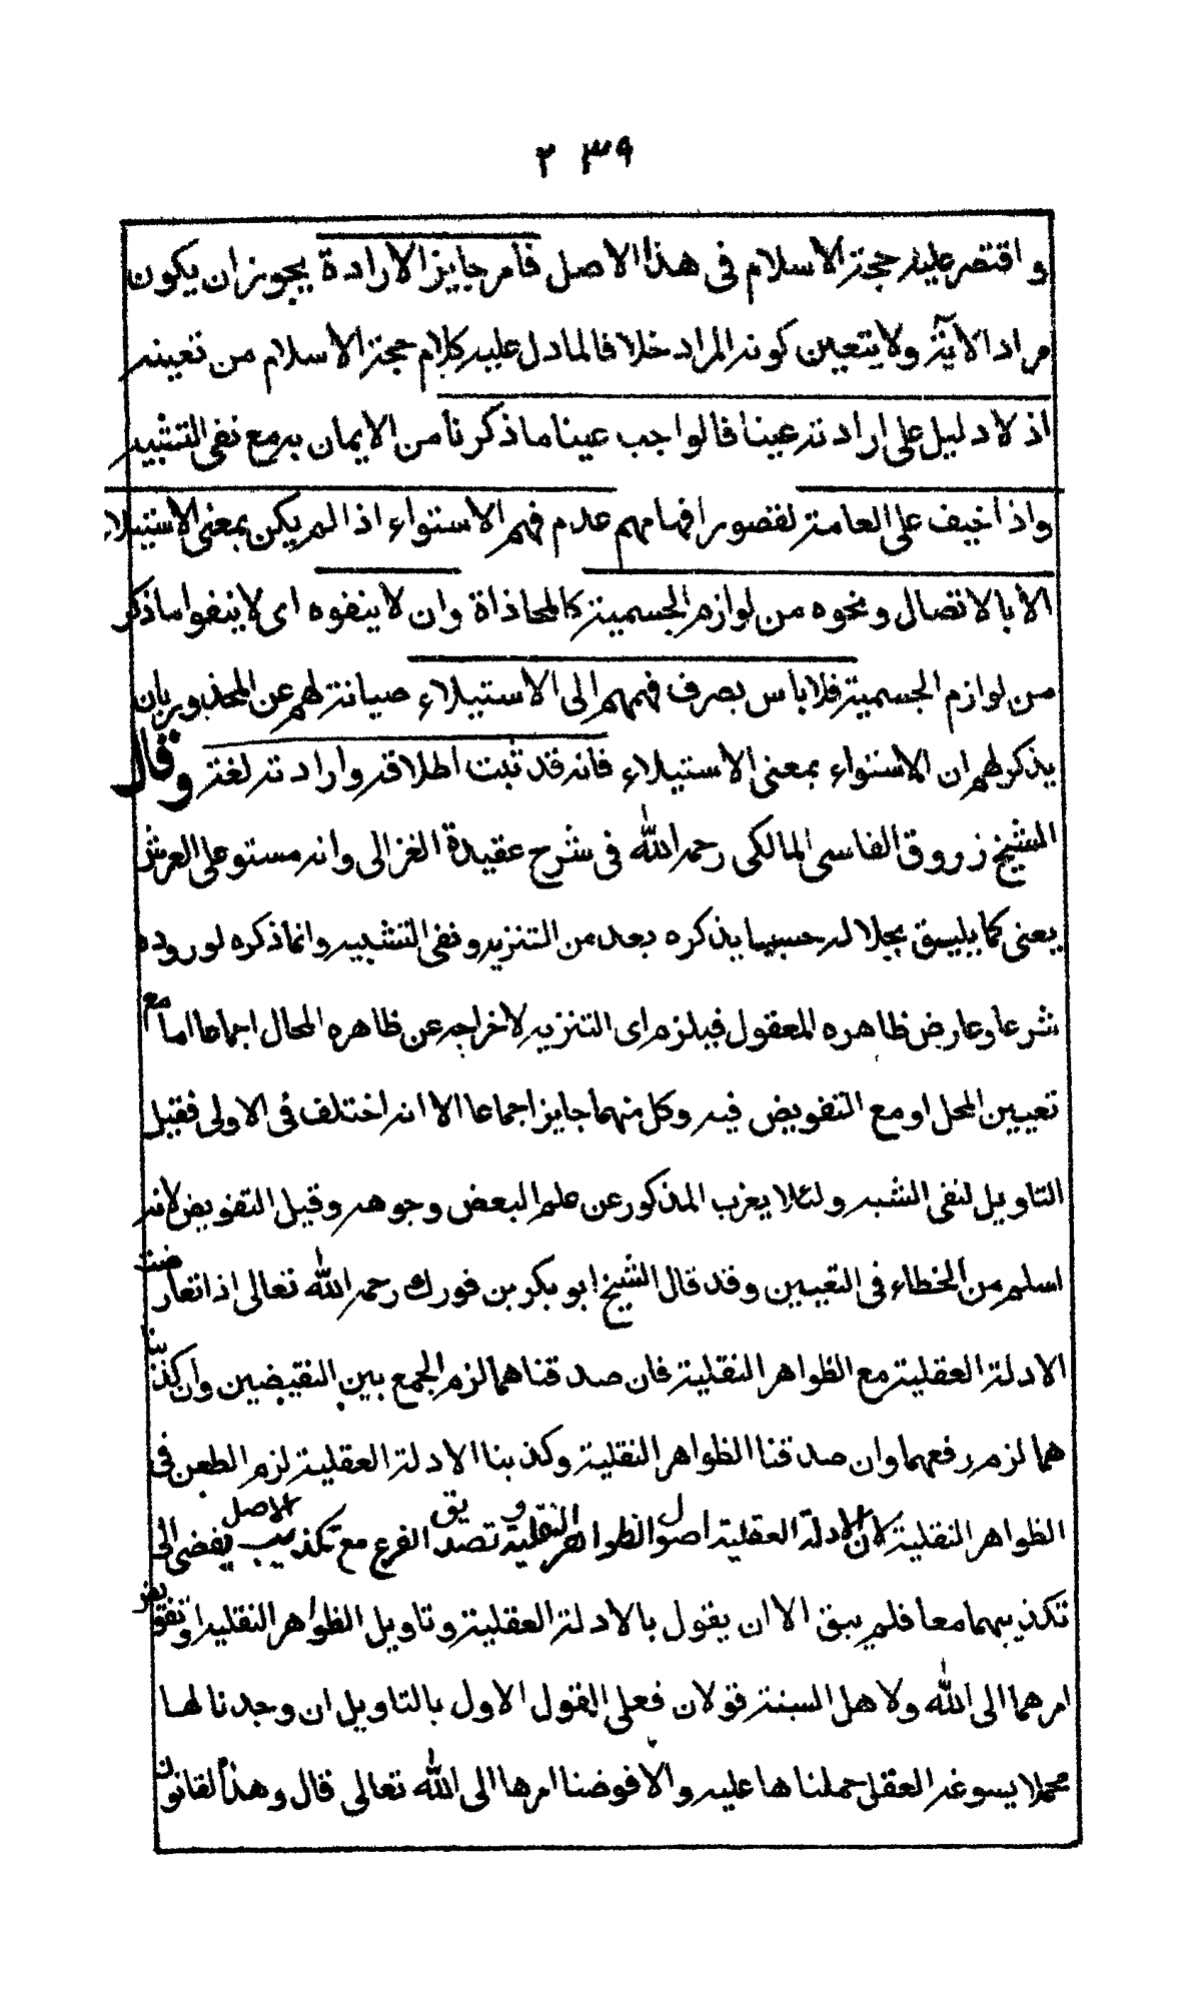 ٢٣٩
واقتصر عليه حجة الاسلام فى هذا الاصل فأمر جايز الارادة يجوز ان يكون
مراد الآية ولا يتعين كونه المراد خلافا لما دل عليه كلام حجة الاسلام من تعينه
اذ لا دليل على ارادته عينا فالواجب عينا ما ذكرنا من الايمان به مع نفى التشبيه
واذا خيف على العامة لقصور افهامهم عدم فهم الاستواء اذا لم يكن بمعنى الاستيلاء
الا بالاتصال ونحوه من لوازم الجسمية كالمحاذاة وان لا ينفوه اى لا ينفوا ما ذكر
من لوازم الجسمية فلا باس بصرف فهمهم الى الاستيلاء صيانة لهم عن المحذور بان
يذكر لهم ان الاستواء بمعنى الاستيلاء فانه قد ثبت اطلاقه وارادته لغة وقال
الشيخ زروق الفاسى المالكى رحمه الله فى شرح عقيدة الغزالى وانه مستو على العرش
يعنى كما يليق بجلاله حسبما يذكره بعد من التنزيه ونفى التشبيه وانما ذكره لوروده
شرعا وعارض ظاهره المعقول فيلزم اى التنزيه لاخراجه عن ظاهره المحال اجماعا اما مع
تعيين المحل او مع التفويض فيه وكل منهما جايز اجماعا الا انه اختلف فى الاولى فقيل
التاويل لنفى الشبه ولئلا يغرب المذكور عن علم البعض وجوهه وقيل التفويض لانه
اسلم من الخطاء فى التعيين وقد قال الشيخ ابو بكر بن فورك رحمه الله تعالى اذا تعارضت
الادلة العقلية مع الظواهر النقلية فان صدقناهما لزم الجمع بين النقيضين وان كذبنا
هما لزم رفعهما وان صدقنا الظواهر النقلية وكذبنا الادلة العقلية لزم الطعن فى
الظواهر النقلية لان الادلة العقلية اصول الظواهر النقلية وتصديق الفرع مع تكذيب الاصل يفضى الى
تكذيبهما معا فلم يبق الا ان يقول بالادلة العقلية وتاويل الظواهر النقليه او تفويض
امرهما الى الله ولاهل السنة قولان فعلى القول الاول بالتاويل ان وجدنا لها
محملا يسوغه العقل حملناها عليه والا فوضنا امرها الى الله تعالى قال وهذا القانون